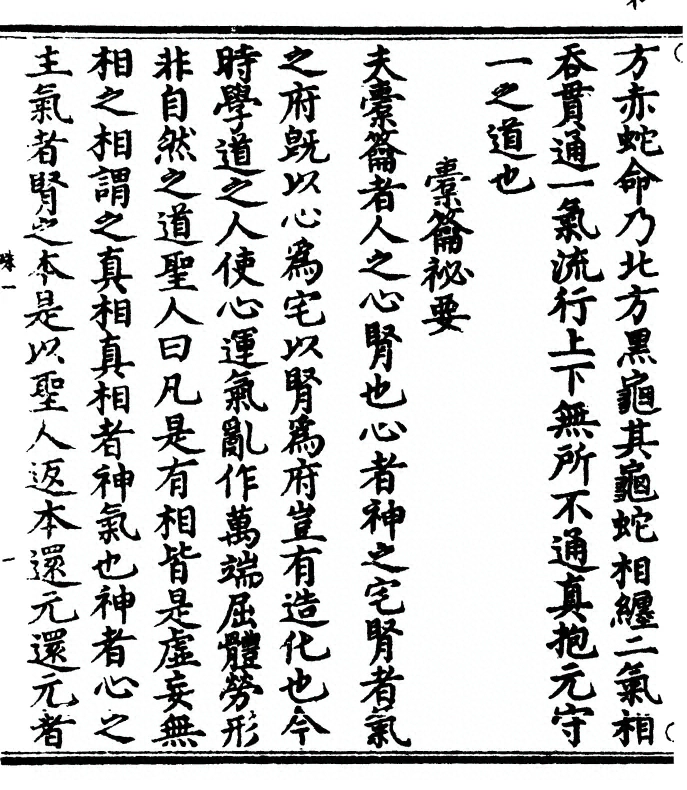 方赤蛇命乃北方黑龜其龜蛇相纏二氣相
吞貫通一氣流行上下無所不通真抱元守
一之道也
橐籥祕要
夫橐籥者人之心腎也心者神之宅腎者氣
之府旣以心為宅以腎為府豈有造化也今
時學道之人使心運氣亂作萬端屈體勞形
非自然之道聖人曰凡是有相皆是虛妄無
相之相謂之真相真相者神氣也神者心之
主氣者腎之本是以聖人返本還元還元者